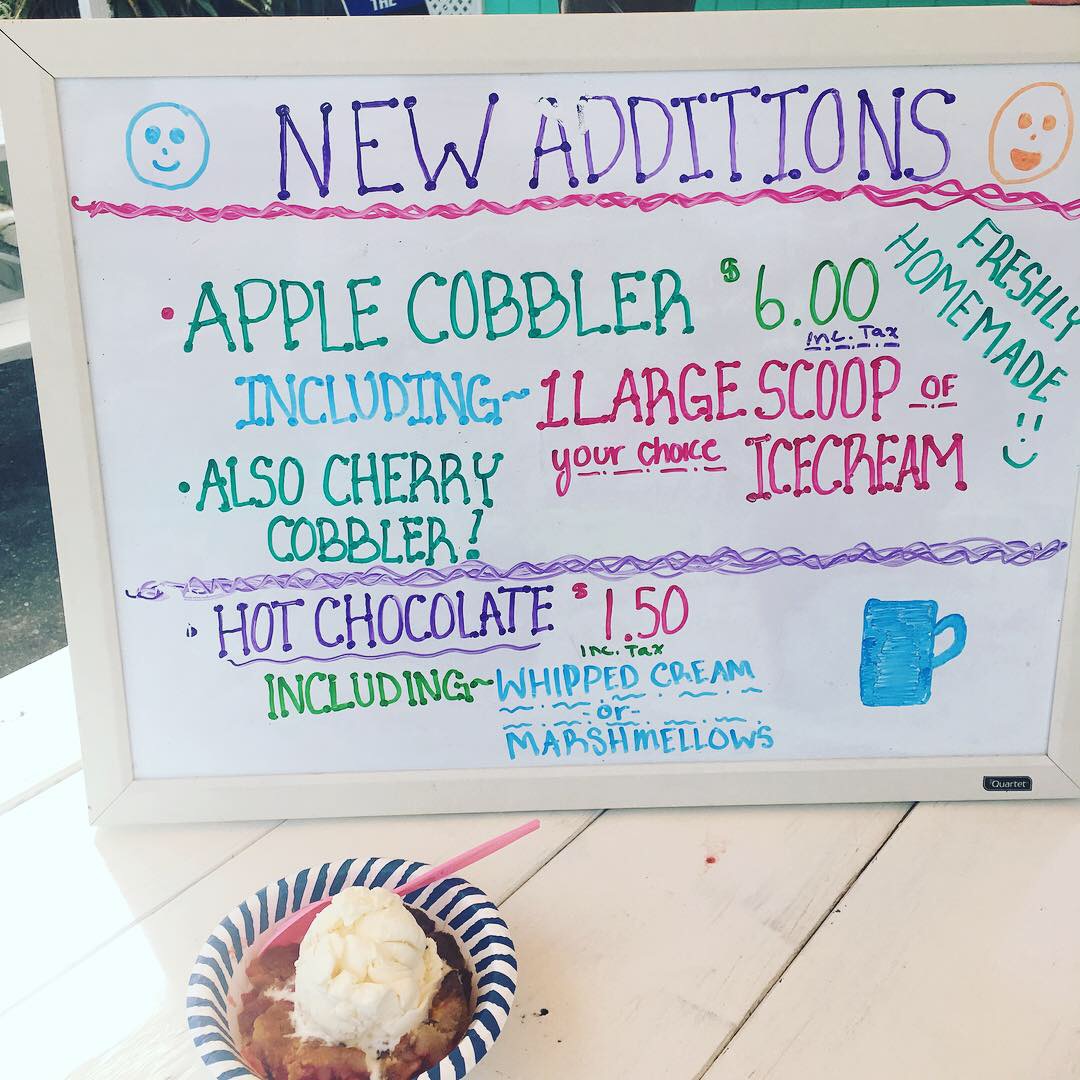 THE
NEW ADDITIONS
FRESHLY
HOMEMADE
• APPLE COBBLER $6.00
Inc. Tax
INCLUDING~ 1 LARGE SCOOP OF
your choice ICECREAM
• ALSO CHERRY
COBBLER!
• HOT CHOCOLATE $1.50
Inc. Tax
INCLUDING~ WHIPPED CREAM
-or-
MARSHMELLOWS
Quartet